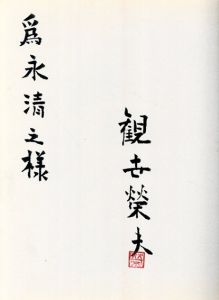 観世榮夫
爲永清之様